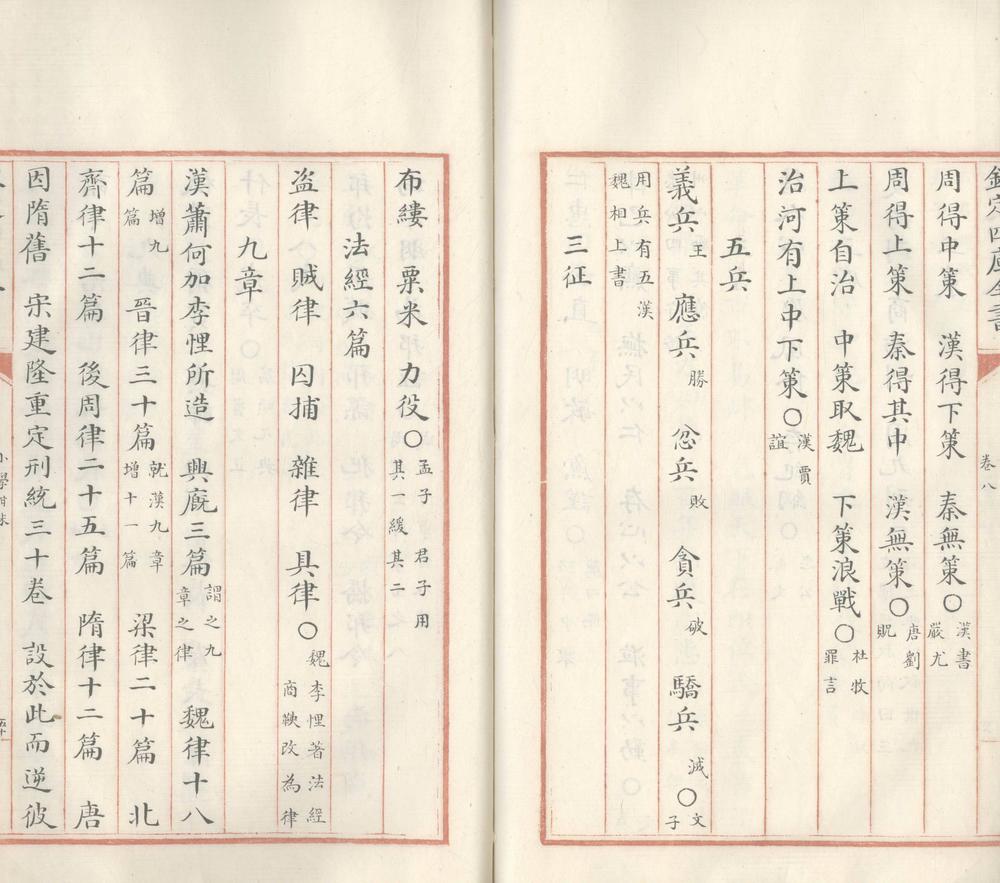 欽定四庫全書
卷八
周得中策　漢得下策　秦無策○漢書嚴尤
周得上策　秦得其中　漢無策○唐劉貺
上策自治　中策取魏　下策浪戰○杜牧罪言
治河有上中下策○漢賈誼
五兵
義兵王　應兵勝　忿兵敗　貪兵破　驕兵滅○文子
用兵有五漢魏相上書
三征
布縷　粟米　力役○孟子君子用其一緩其二
法經六篇
盗律　賊律　囚捕　雜律　具律○魏李悝著法經商鞅改為律
九章
漢蕭何加李悝所造　興廐三篇謂之九章之律　魏律十八
篇增九篇　晉律三十篇就漢九章增十一篇　梁律二十篇　北
齊律十二篇　後周律二十五篇　隋律十二篇　唐
因隋舊　宋建隆重定刑統三十卷　設於此而逆彼
小學紺珠
五十一